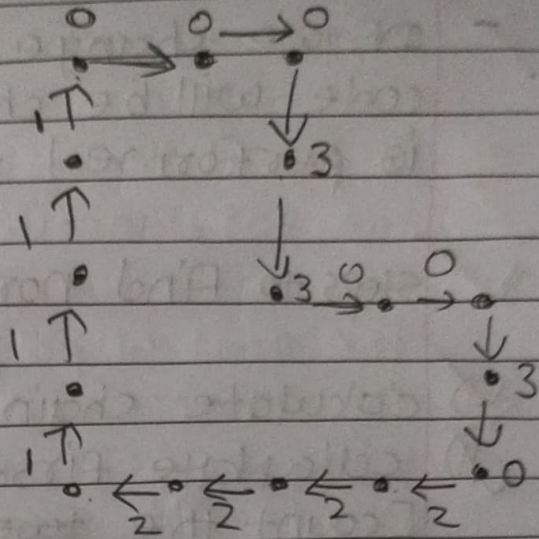 0 0 0
1
3
1
3 0 0
1
3
1
0
2 2 2 2